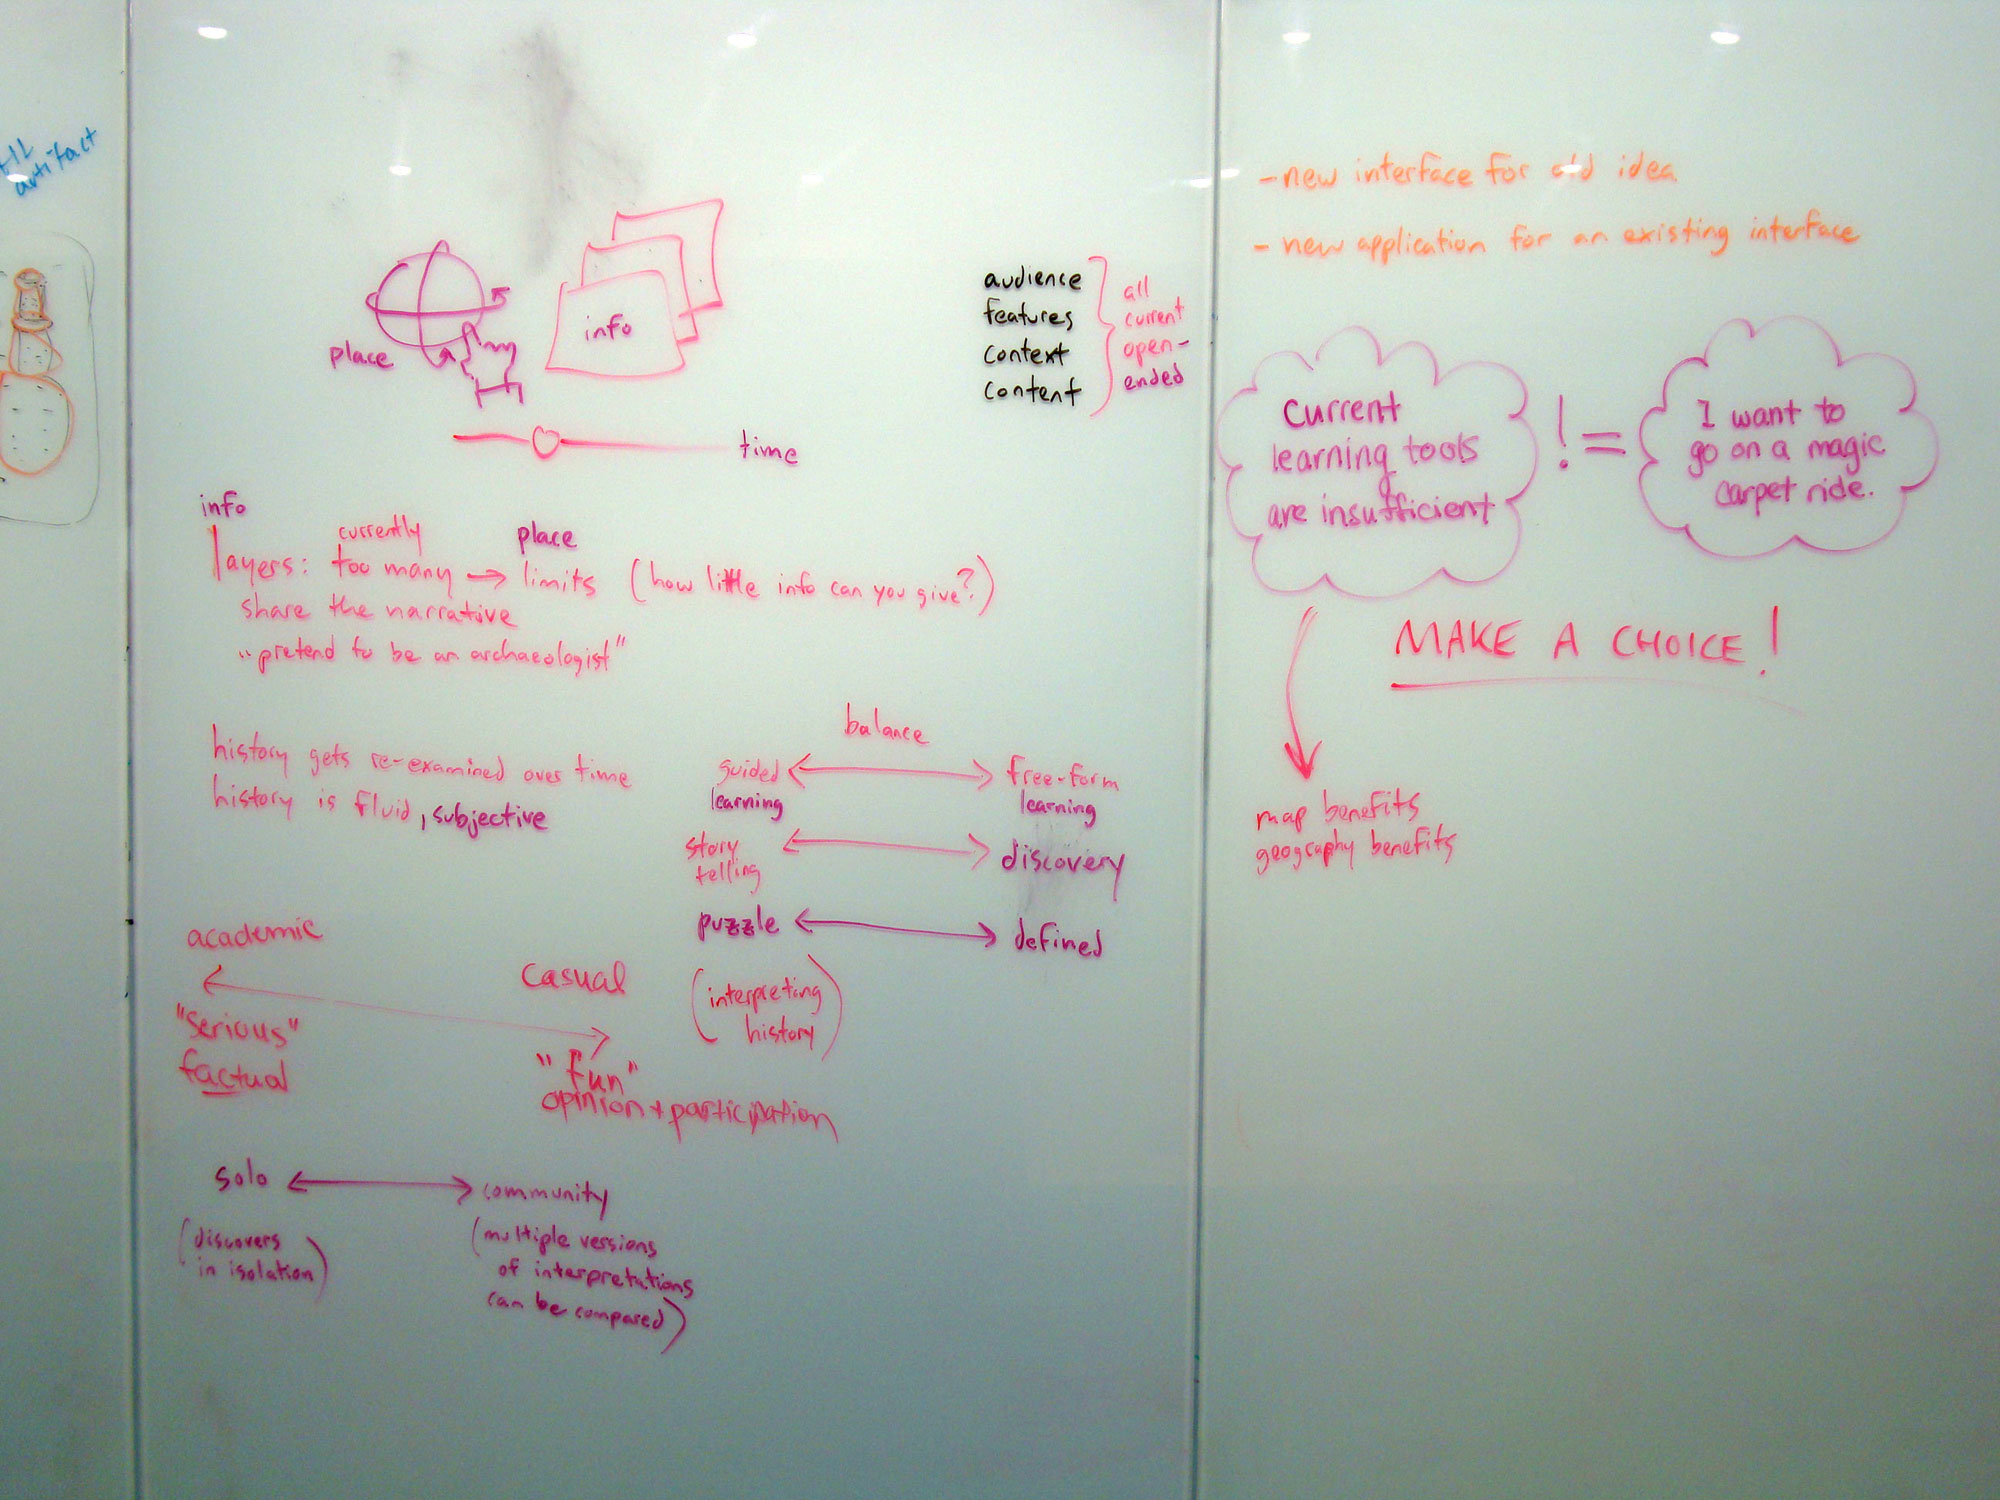 artifact
place
info
time
audience
features
context
content
all
current
open-
ended
info
currently
place
layers: too many → limits (how little info can you give?)
share the narrative
"pretend to be an archaeologist"
history gets re-examined over time
history is fluid, subjective
balance
guided ↔ free-form
learning learning
story ↔ discovery
telling
puzzle ↔ defined
(interpreting
history)
academic
casual
"serious"
factual
"fun"
opinion + participation
solo ↔ community
(discovers
in isolation)
(multiple versions
of interpretations
can be compared)
- new interface for old idea
- new application for an existing interface
current
learning tools
are insufficient
!=
I want to
go on a magic
carpet ride.
MAKE A CHOICE!
map benefits
geography benefits